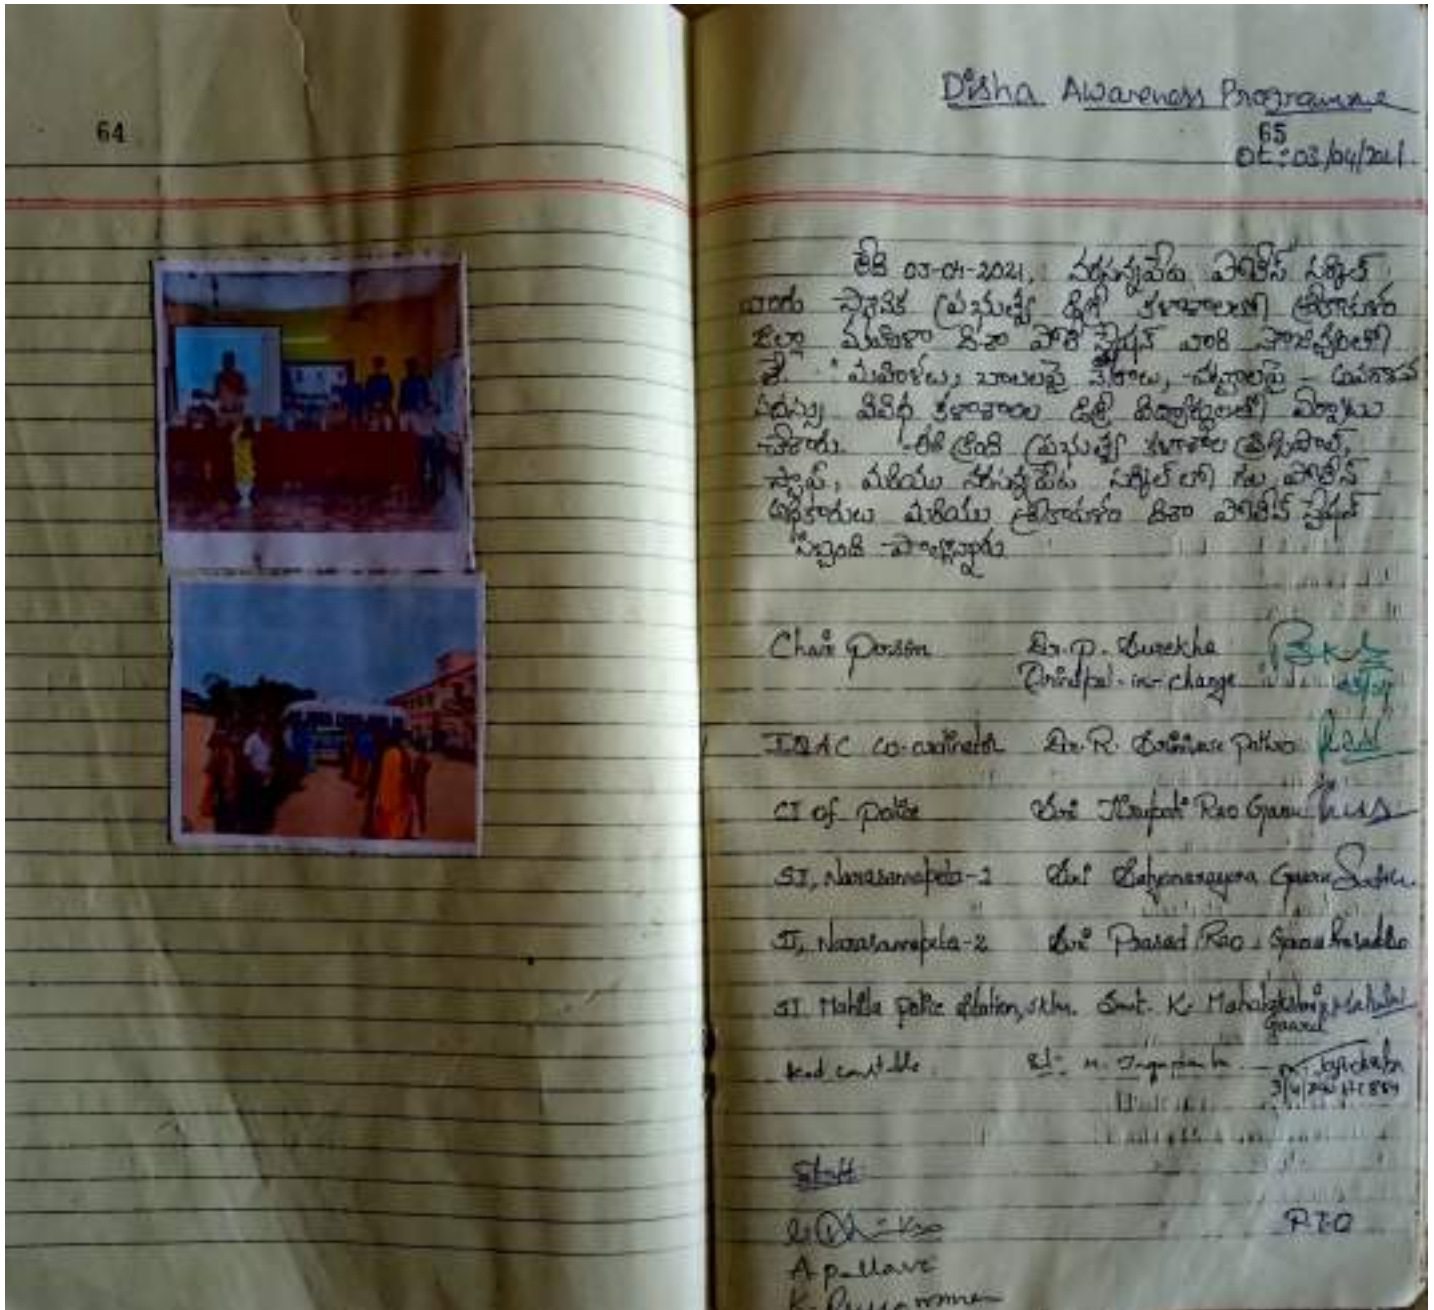 64
Disha Awareness Programme
65
Dt: 03/04/2021.
తేది 03-04-2021, నరసన్నపేట పోలీస్ సర్కిల్
వారు స్థానిక ప్రభుత్వ డిగ్రీ కళాశాలలో శ్రీకాకుళం
జిల్లా మహిళా దిశా పోలీ స్టేషన్ వారి
మహిళలు, బాలలపై నేరాలు, చట్టాలపై అవగాహన
సదస్సు వివిధ కళాశాలల డిగ్రీ విద్యార్థులతో ఏర్పాటు
చేశారు. ప్రభుత్వ కళాశాల ప్రిన్సిపాల్,
స్టాఫ్, మరియు నరసన్నపేట సర్కిల్ లో గల పోలీస్
అధికారులు మరియు శ్రీకాకుళం దిశా పోలీస్ స్టేషన్
సిబ్బంది పాల్గొన్నారు.
Chair person Dr. P. Surekha
Principal-in-charge
IQAC co-ordinator Dr. R. Srinivasa Pathro
CI of police Sri Tirupati Rao Garu
SI, Narasannapeta-1 Sri Satyanarayana Gaaru
SI, Narasannapeta-2 Sri Prasad Rao Gaaru
SI. Mahila police station, sklm. Smt. K. Mahalakshmi
Gaaru
3/4/2021 HC 884
Staff
P.T.O
A pallavi